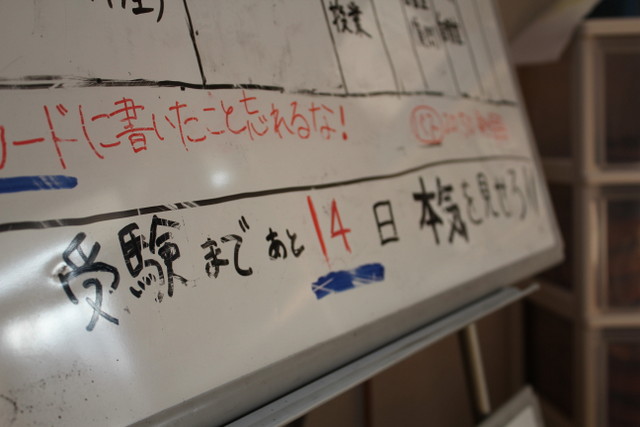 授業
ードに書いたこと忘れるな!
受験まであと14日 本気を見せろ!!